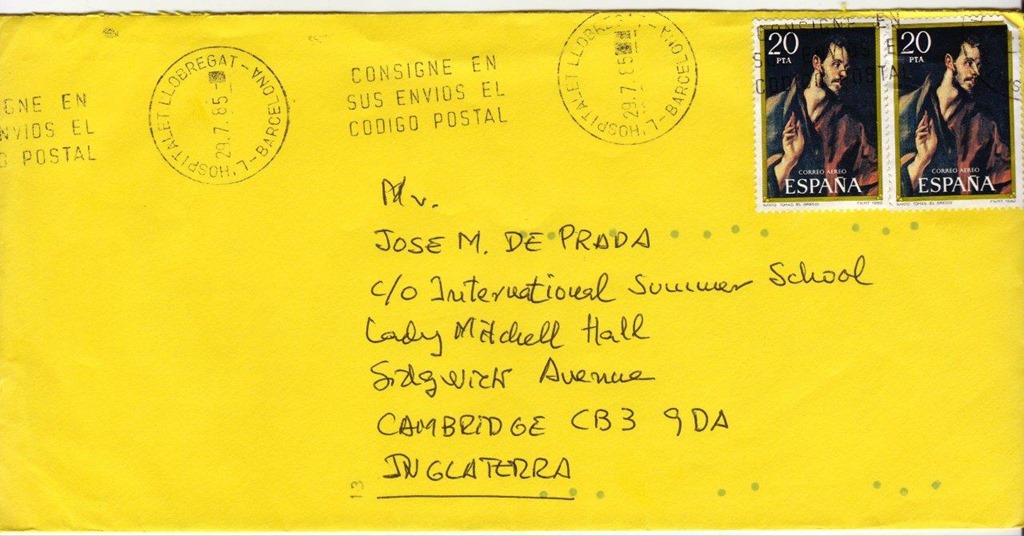 GNE EN
NVIOS EL
O POSTAL
HOSPITALET LLOBREGAT - 29.7.85 - 7-BARCELONA
CONSIGNE EN
SUS ENVIOS EL
CODIGO POSTAL
HOSPITALET LLOBREGAT - 29.7.85 - 7-BARCELONA
CONSIGNE EN
SUS ENVIOS EL
CODIGO POSTAL
20
PTA
CORREO AEREO
ESPAÑA
SANTO TOMAS. EL GRECO
20
PTA
CORREO AEREO
ESPAÑA
SANTO TOMAS. EL GRECO
Mr.
JOSE M. DE PRADA
c/o International Summer School
Lady Mitchell Hall
Sidgwick Avenue
CAMBRIDGE CB3 9DA
INGLATERRA
13